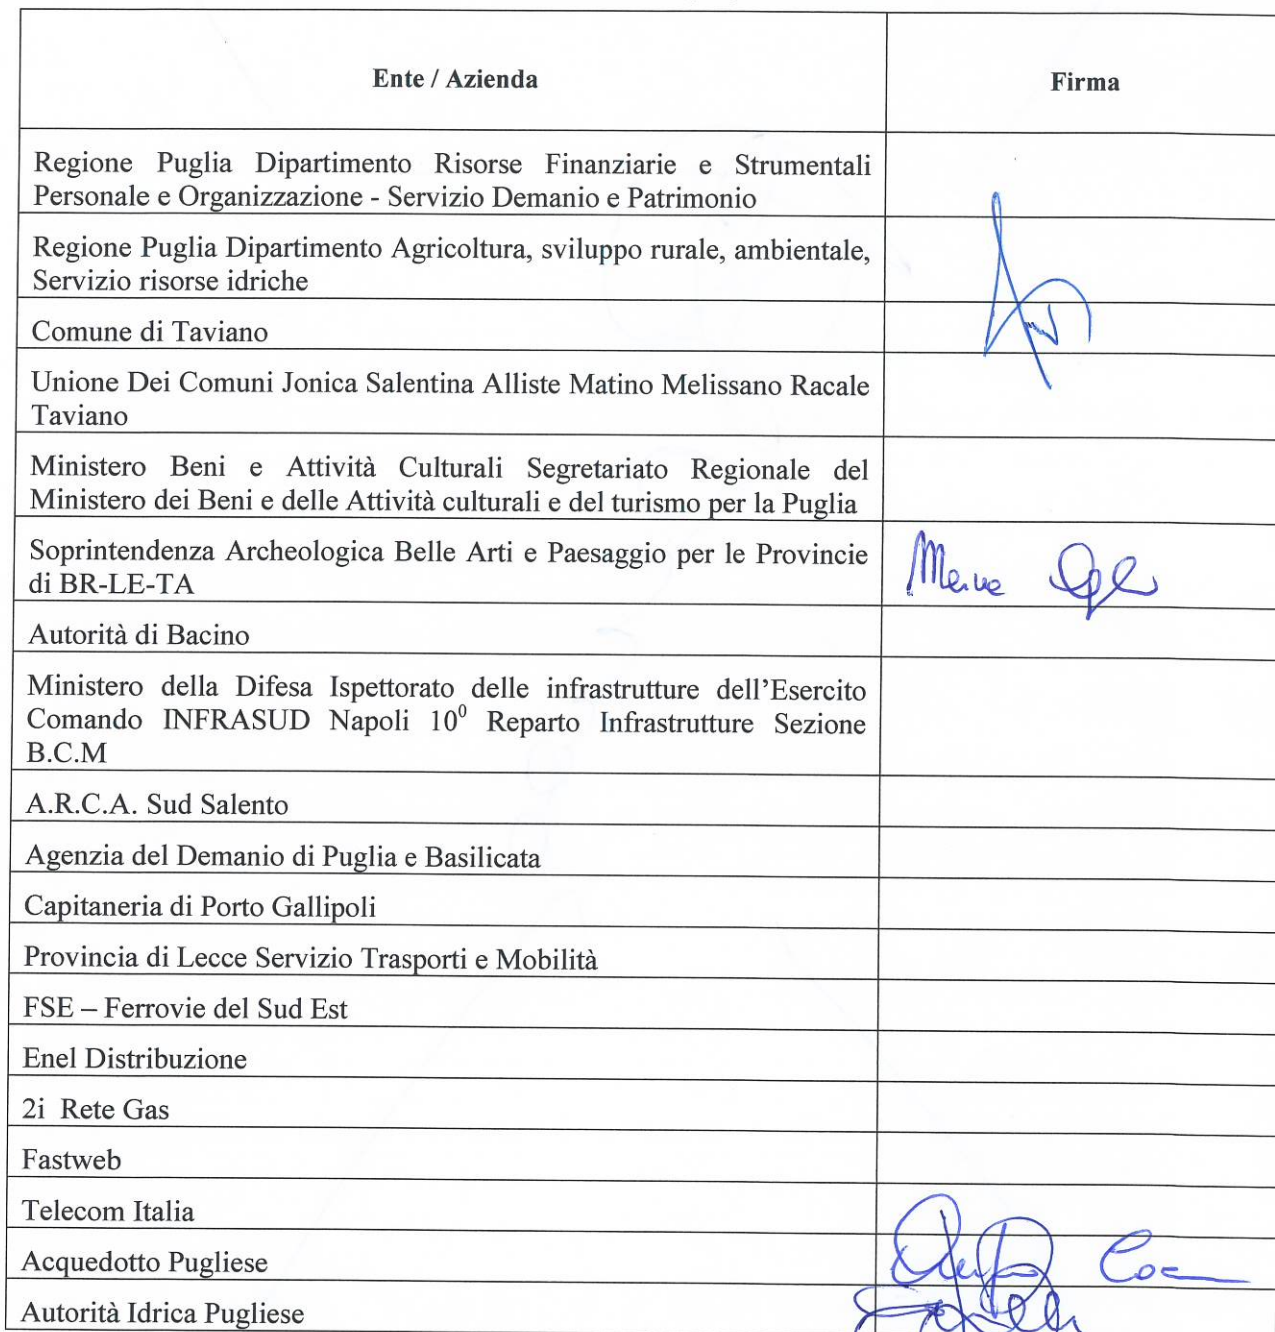 Ente / Azienda
Firma
Regione Puglia Dipartimento Risorse Finanziarie e Strumentali
Personale e Organizzazione - Servizio Demanio e Patrimonio
Regione Puglia Dipartimento Agricoltura, sviluppo rurale, ambientale,
Servizio risorse idriche
Comune di Taviano
Unione Dei Comuni Jonica Salentina Alliste Matino Melissano Racale
Taviano
Ministero Beni e Attività Culturali Segretariato Regionale del
Ministero dei Beni e delle Attività culturali e del turismo per la Puglia
Soprintendenza Archeologica Belle Arti e Paesaggio per le Provincie
di BR-LE-TA
Autorità di Bacino
Ministero della Difesa Ispettorato delle infrastrutture dell'Esercito
Comando INFRASUD Napoli 10⁰ Reparto Infrastrutture Sezione
B.C.M
A.R.C.A. Sud Salento
Agenzia del Demanio di Puglia e Basilicata
Capitaneria di Porto Gallipoli
Provincia di Lecce Servizio Trasporti e Mobilità
FSE – Ferrovie del Sud Est
Enel Distribuzione
2i Rete Gas
Fastweb
Telecom Italia
Acquedotto Pugliese
Autorità Idrica Pugliese